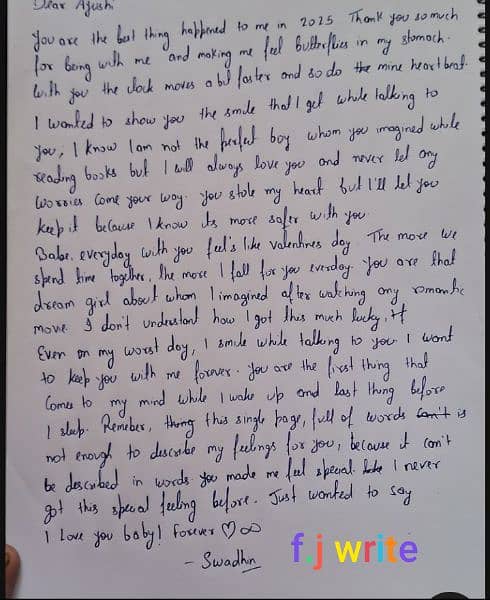 Dear Ayushi
You are the best thing happened to me in 2025 Thank you so much
for being with me and making me feel butterflies in my stomach.
With you the clock moves a bit faster and so do the mine heartbeat.
I wanted to show you the smile that I get while talking to
you, I know I am not the perfect boy whom you imagined while
reading books but I will always love you and never let any
worries come your way. you stole my heart but I'll let you
keep it because I know its more safer with you.
Babe, everyday with you feel's like valentines day The more we
spend time together, the more I fall for you everday. you are that
dream girl about whom I imagined after watching any romantic
movie. I don't understant how I got this much lucky,
Even on my worst day, I smile while talking to you. I want
to keep you with me forever. you are the first thing that
Comes to my mind while I wake up and last thing before
I sleep. Remeber, thong this single page, full of words can't is
not enough to describe my feelings for you, because it can't
be described in words. you made me feel special. I never
got this special feeling before. Just wanted to say
I Love you baby! Forever ♡∞
- Swadhin
f.j write